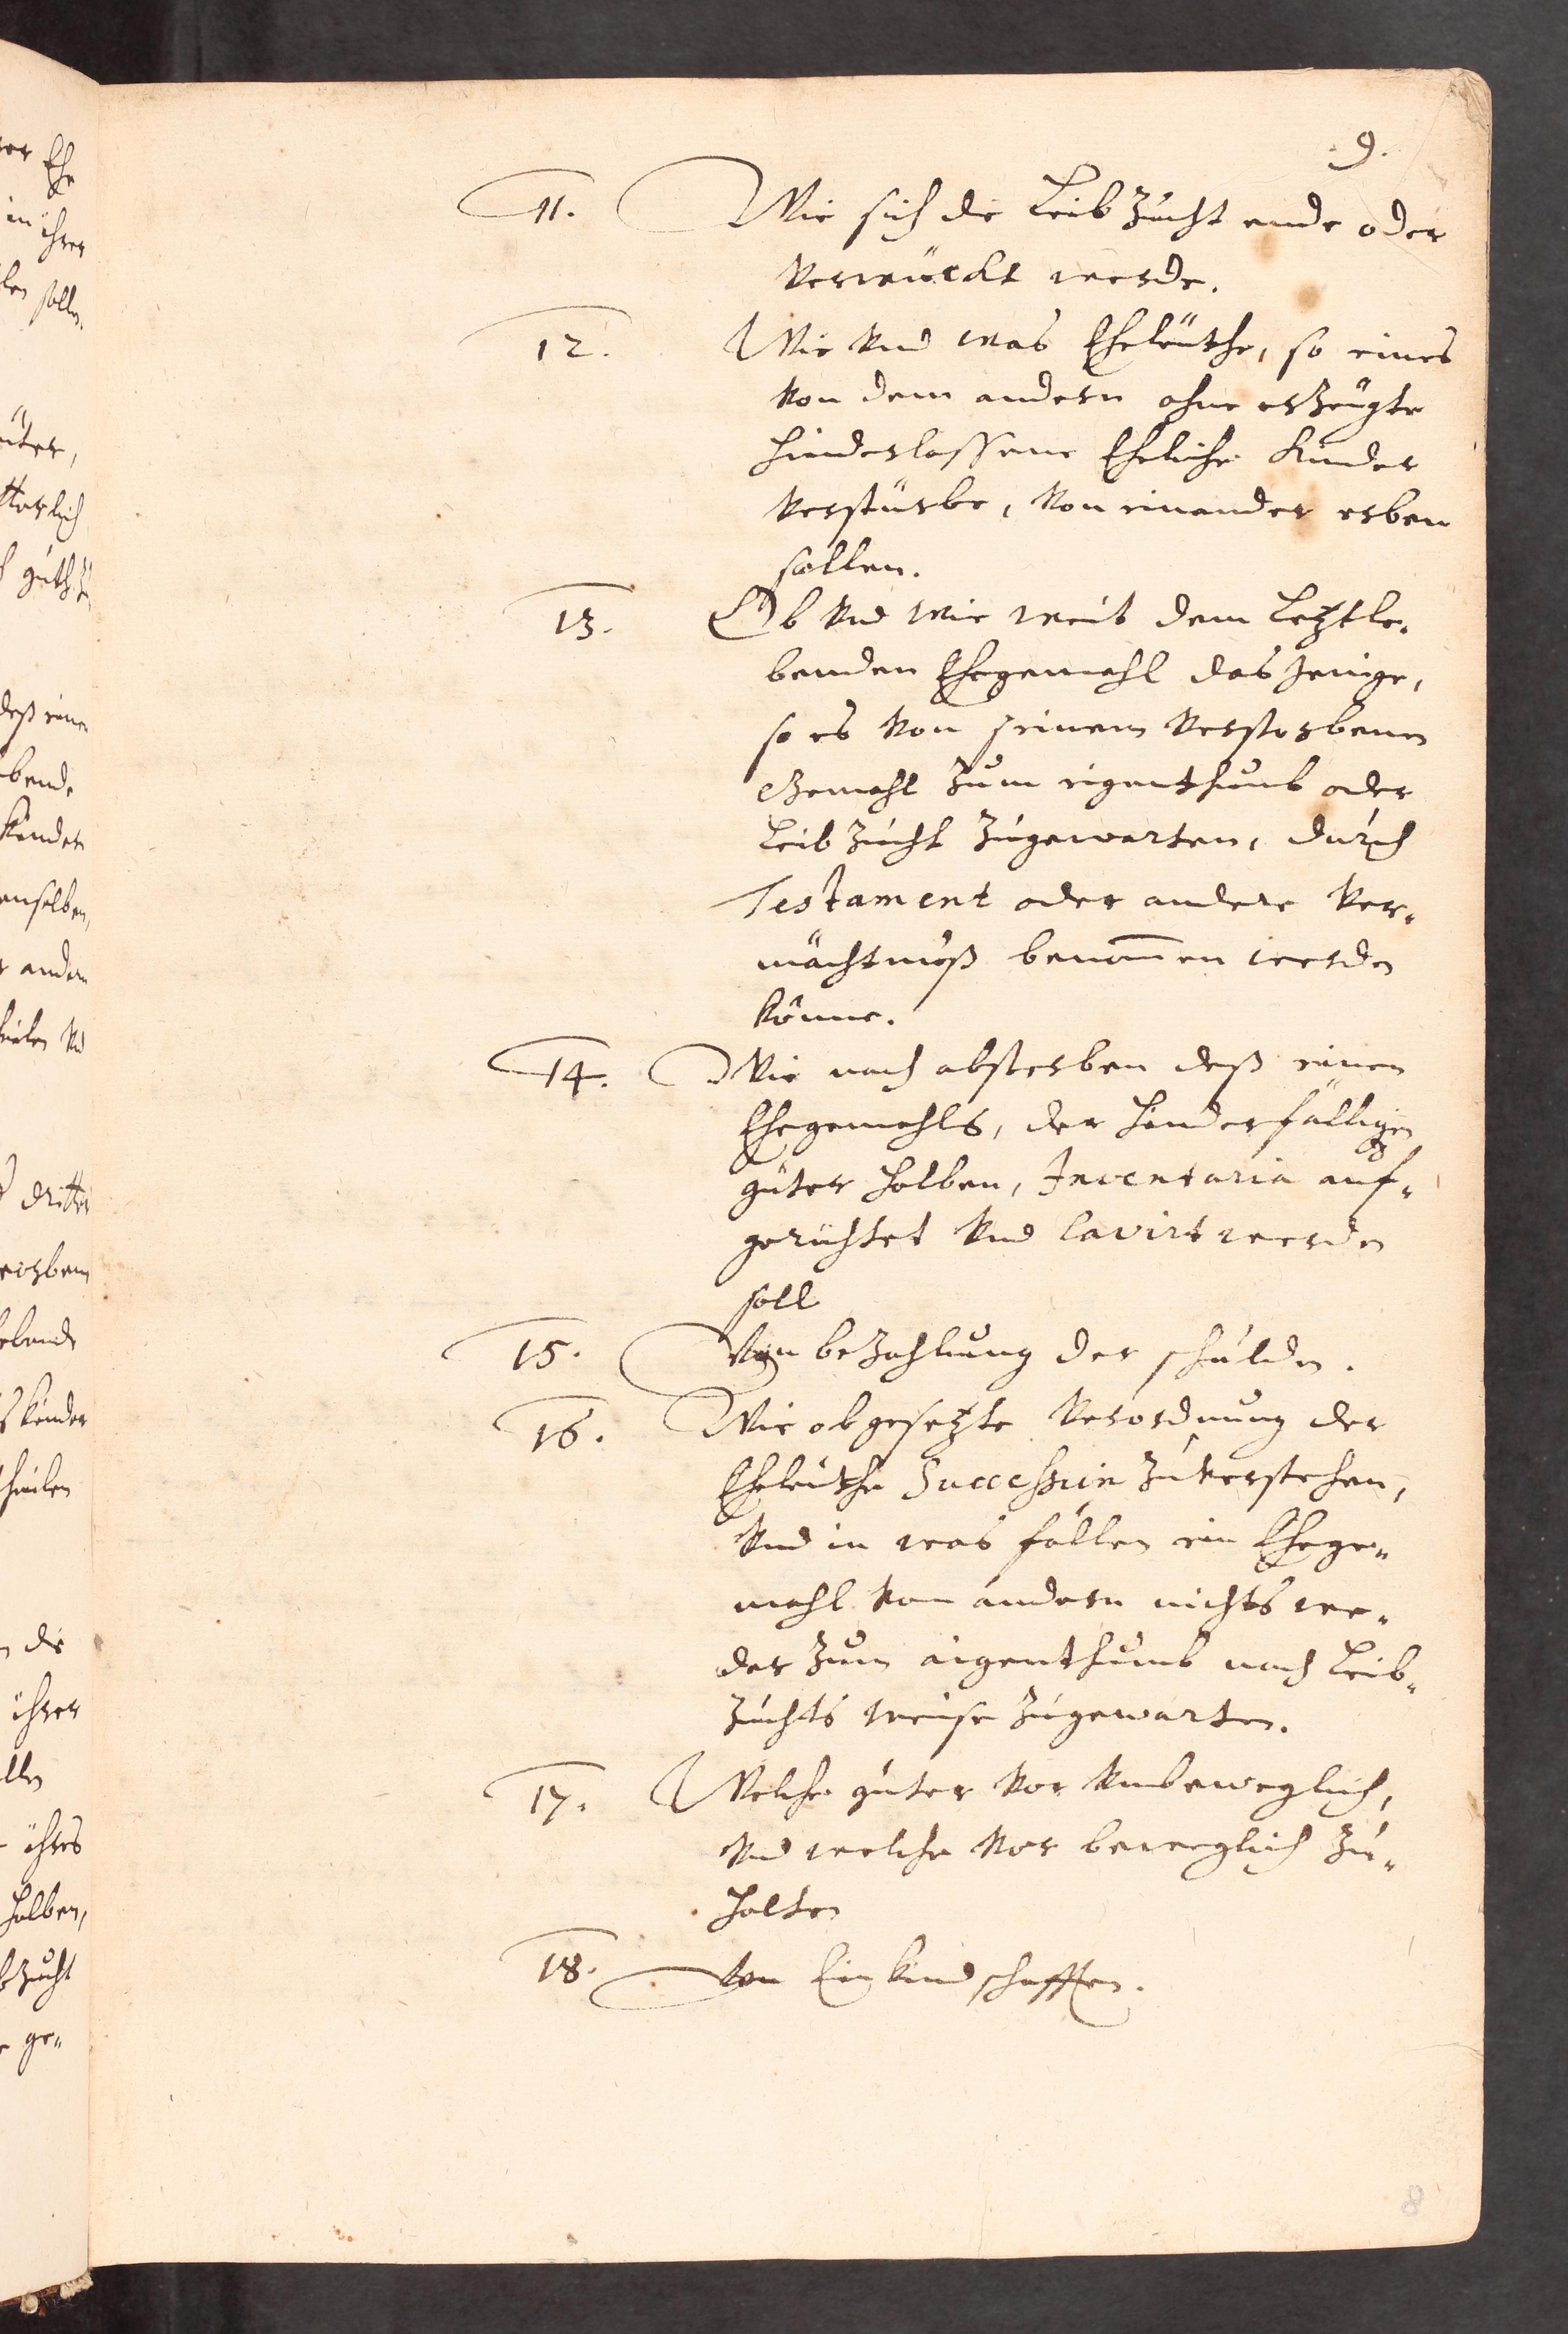 .9.
11. Wie sich die Leib Zucht ende oder
verwückt werde.
12. Wie vnd was Eheleüthe, so eines
von dem andern ohne erzeügte
hinderlassene Eheliche Kinder
verstürbe, von einander erben
sollen.
13. Ob vnd wie weit dem Letztle„
benden Ehegemahl das Jenige,
so es von seinem verstorbenen
Gemahl Zum eigenthumb oder
Leib Zucht Zugewarten, durch
Testament oder andere Ver„
mächtnüß benom̅en werden
könne.
14. Wie nach absterben deß einen
Ehegemahls, der hinderfälligen
güter halben, Inventaria auf„
gerichtet vnd Cavirt werden
soll
15. Von beZahlung der schulden.
16. Wie obgesetzte Verordnung der
Eheleuthe Succession Zuverstehen,
vnd in was fällen ein Ehege„
mahl vom andern nichts we„
der Zum aigenthumb noch Leib„
Zuchts weise Zugewarten.
17. Welche güter vor vnbeweglich,
vnd welche vor beweglich Zu„
halten
18. Von Einkindschafften.
8